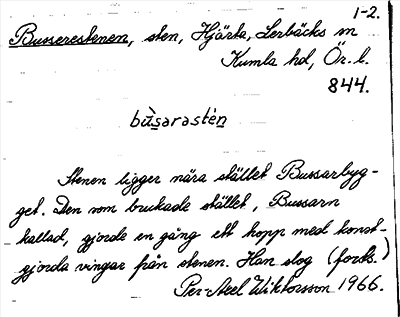 1-2.
Busserestenen, sten, Hjärta, Lerbäcks sn
Kumla hd, Ör. l.
844.
bùsarastén
Stenen ligger nära stället Bussarbyg-
get. Den som brukade stället, Bussarn
kallad, gjorde en gång ett hopp med konst-
gjorda vingar från stenen. Han slog (forts.)
Per-Axel Wiktorsson 1966.